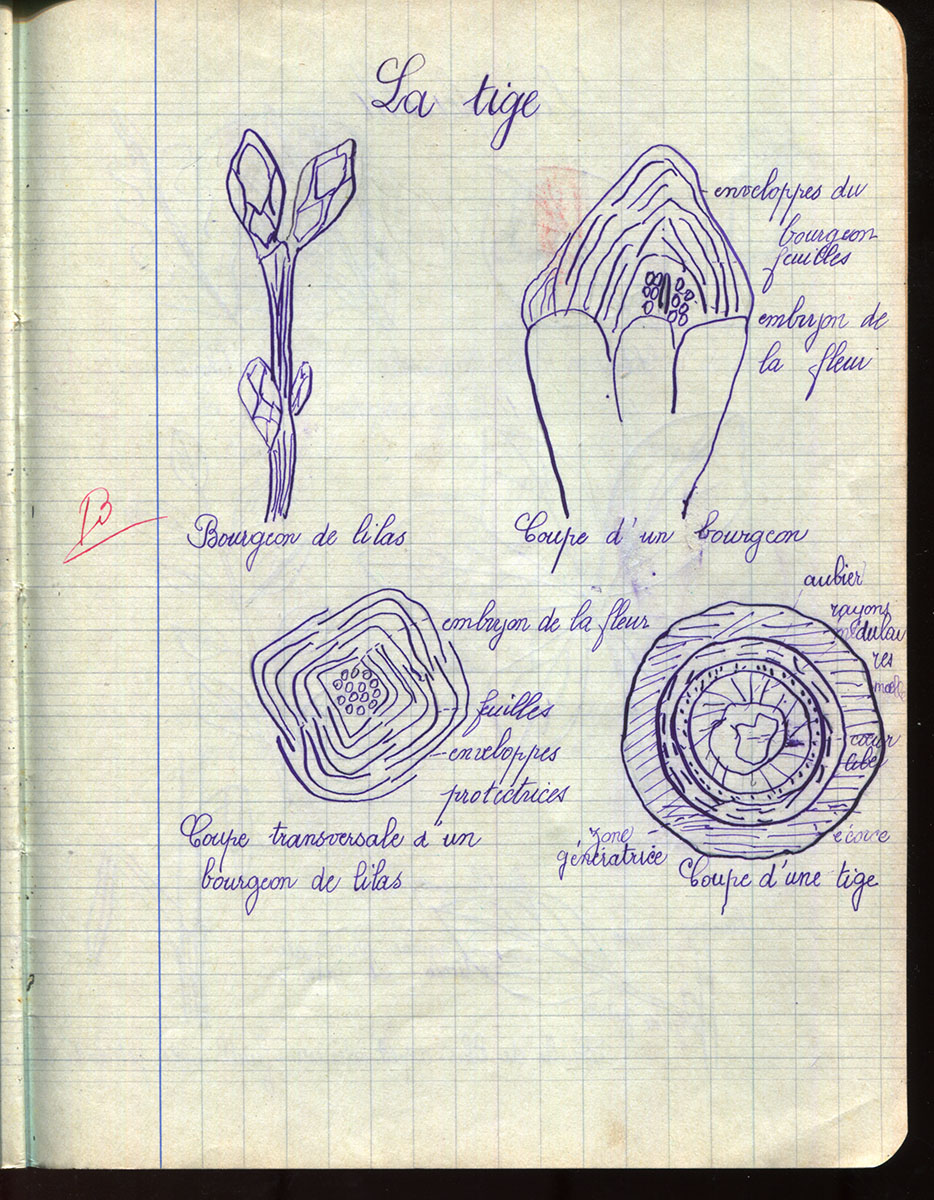 La tige
enveloppes du
bourgeon
feuilles
embryon de
la fleur
B
Bourgeon de lilas
Coupe d'un bourgeon
embryon de la fleur
feuilles
enveloppes
protectrices
Coupe transversale d'un
bourgeon de lilas
aubier
rayons
médulai
res
moelle
cœur
liber
écorce
zone
génératrice
Coupe d'une tige